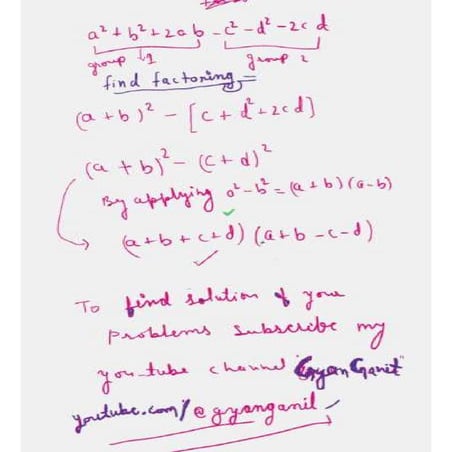 a² + b² + 2ab - c² - d² - 2cd
group 1 group 2
find factoring =
(a + b)² - [c + d² + 2cd]
(a + b)² - (c + d)²
By applying a² - b² = (a + b) (a - b)
(a + b + c + d) (a + b - c - d)
To find solution of your
problems subscribe my
you-tube channel "Gyan Ganit"
youtube.com/@gyanganit